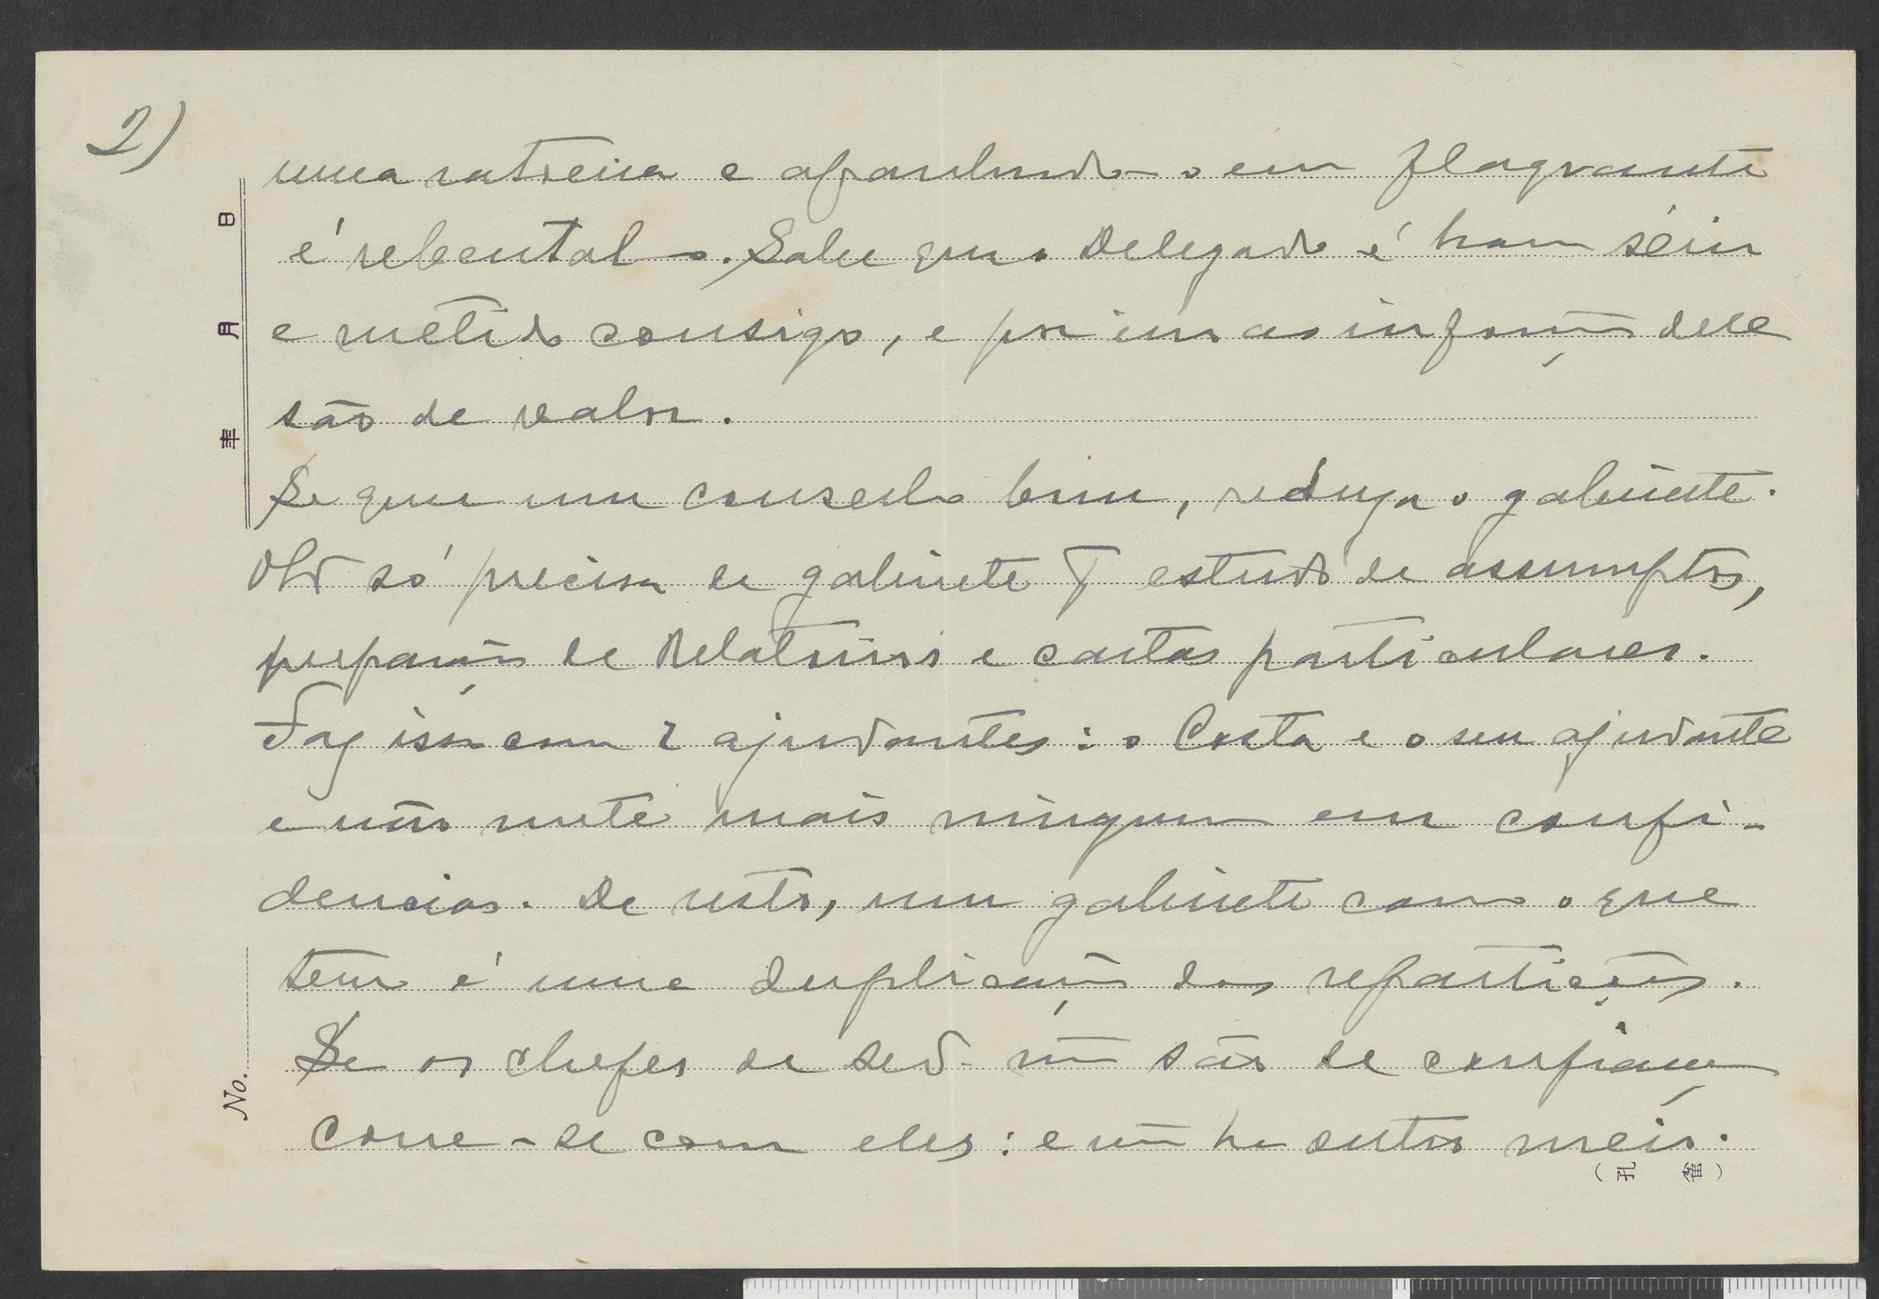 2)
uma ratoeira e apanhando-o em flagrante
é rebental-o. Sabe que o Delegado é homem sério
e metido consigo, e por isso as informações dele
são de valor.
Se quer um conselho bom, reduza o gabinete.
só precisa de gabinete estudo de assumptos,
preparação de Relatorios e cartas particulares.
Faz isso com 2 ajudantes: o Costa e o seu ajudante
e não mete mais ninguem em confi-
dencias. De resto, um gabinete como o que
tem é uma duplicação das repartições.
Se os chefes de não são de confiança
corre-se com eles: e não ha outro meio.
日
月
年
No.
(孔雀)